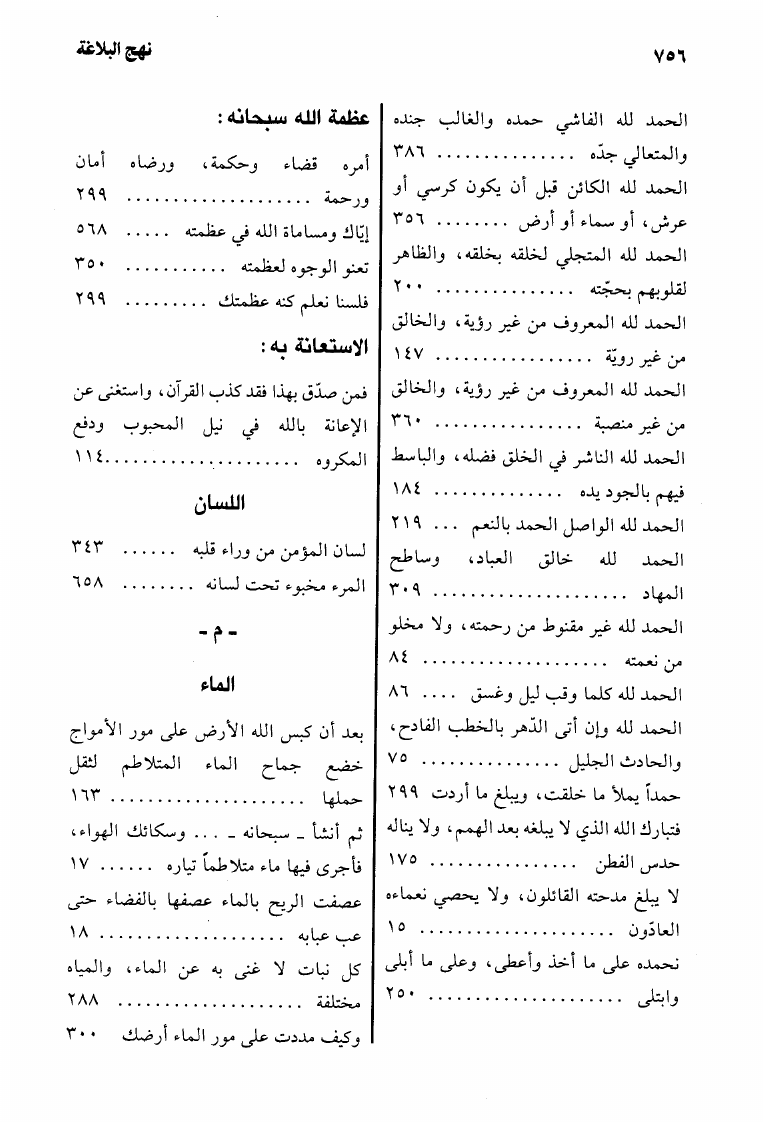 ٧٥٦
نهج البلاغة
الحمد لله الفاشي حمده والغالب جنده
والمتعالي جدّه ............... ٣٨٦
الحمد لله الكائن قبل أن يكون كرسي أو
عرش، أو سماء أو أرض ........ ٣٥٦
الحمد لله المتجلي لخلقه بخلقه، والظاهر
لقلوبهم بحجّته ............... ٢٠٠
الحمد لله المعروف من غير رؤية، والخالق
من غير رويّة ................. ١٤٧
الحمد لله المعروف من غير رؤية، والخالق
من غير منصبة ................ ٣٦٠
الحمد لله الناشر في الخلق فضله، والباسط
فيهم بالجود يده .............. ١٨٤
الحمد لله الواصل الحمد بالنعم ... ٢١٩
الحمد لله خالق العباد، وساطح
المهاد ..................... ٣٠٩
الحمد لله غير مقنوط من رحمته، ولا مخلو
من نعمته .................... ٨٤
الحمد لله كلما وقب ليل وغسق .... ٨٦
الحمد لله وإن أتى الدّهر بالخطب الفادح،
والحادث الجليل ............... ٧٥
حمداً يملأ ما خلقت، ويبلغ ما أردت ٢٩٩
فتبارك الله الذي لا يبلغه بعد الهمم، ولا يناله
حدس الفطن ................ ١٧٥
لا يبلغ مدحته القائلون، ولا يحصي نعماءه
العادّون ..................... ١٥
نحمده على ما أخذ وأعطى، وعلى ما أبلى
وابتلى ..................... ٢٥٠
عظمة الله سبحانه :
أمره قضاء وحكمة، ورضاه أمان
ورحمة .................... ٢٩٩
إيّاك ومساماة الله في عظمته ..... ٥٦٨
تعنو الوجوه لعظمته ........... ٣٥٠
فلسنا نعلم كنه عظمتك ......... ٢٩٩
الاستعانة به :
فمن صدّق بهذا فقد كذب القرآن، واستغنى عن
الإعانة بالله في نيل المحبوب ودفع
المكروه ..................... ١١٤
اللسان
لسان المؤمن من وراء قلبه ...... ٣٤٣
المرء مخبوء تحت لسانه ........ ٦٥٨
- م -
الماء
بعد أن كبس الله الأرض على مور الأمواج
خضع جماح الماء المتلاطم لثقل
حملها ..................... ١٦٣
ثم أنشأ - سبحانه - ... وسكائك الهواء،
فأجرى فيها ماء متلاطماً تياره ...... ١٧
عصفت الريح بالماء عصفها بالفضاء حتى
عب عبابه .................... ١٨
كل نبات لا غنى به عن الماء، والمياه
مختلفة .................... ٢٨٨
وكيف مددت على مور الماء أرضك ٣٠٠